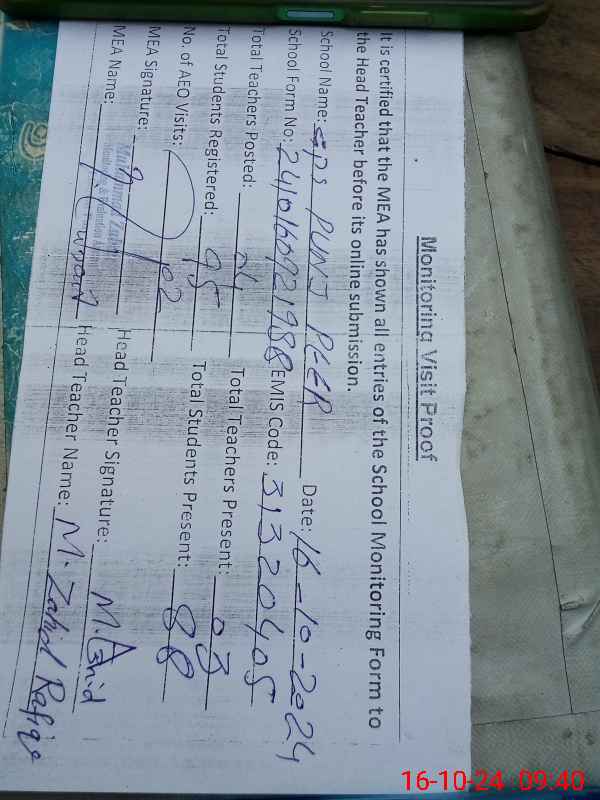 Monitoring Visit Proof
It is certified that the MEA has shown all entries of the School Monitoring Form to
the Head Teacher before its online submission.
School Name: GPS PUNJ PEER Date: 16-10-2024
School Form No: 2410160921988 EMIS Code: 31320405
Total Teachers Posted: 04 Total Teachers Present: 03
Total Students Registered: 95 Total Students Present: 88
No. of AEO Visits: 02
MEA Signature: Head Teacher Signature: M.
MEA Name: Head Teacher Name: M. Zahid Rafique
16-10-24 09:40